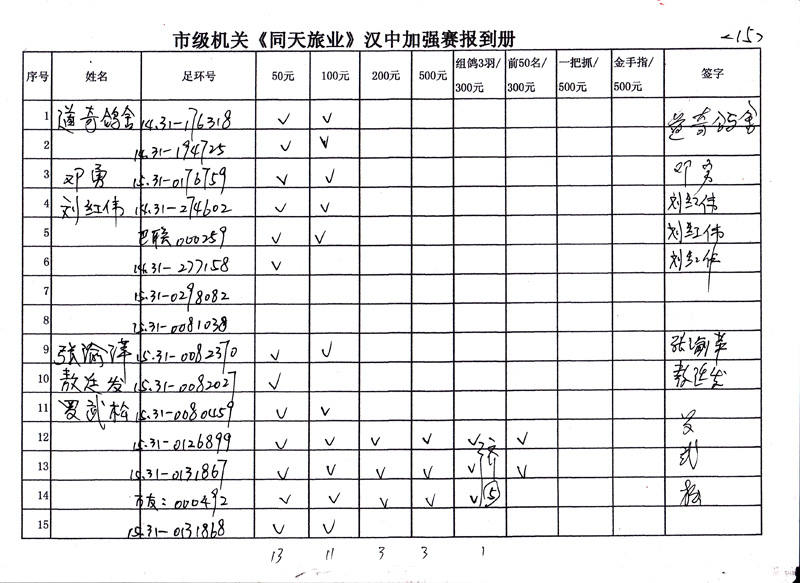 市级机关《同天旅业》汉中加强赛报到册 <15>
序号 姓名 足环号 50元 100元 200元 500元 组鸽3羽/300元 前50名/300元 一把抓/500元 金手指/500元 签字
1 道奇鸽舍 14.31-176318 ✓ ✓ 道奇鸽舍
2 14.31-194725 ✓ ✓
3 邓勇 15.31-0176759 ✓ ✓ 邓勇
4 刘红伟 14.31-274602 ✓ ✓ 刘红伟
5 巴联000259 ✓ ✓ 刘红伟
6 14.31-277158 ✓ 刘红伟
7 15.31-0298082
8 15.31-0081038
9 张渝萍 15.31-0082370 ✓ ✓ 张渝萍
10 敖廷发 15.31-0082027 ✓ 敖廷发
11 罗武松 15.31-0080459 ✓ ✓ 罗
12 15.31-0126899 ✓ ✓ ✓ ✓ ✓ ✓ 武
13 15.31-0131867 ✓ ✓ ✓ ✓ ✓ ✓ 松
14 市友:000492 ✓ ✓ ✓ ✓ ✓ ⑤
15 15.31-0131868 ✓ ✓
13 11 3 3 1